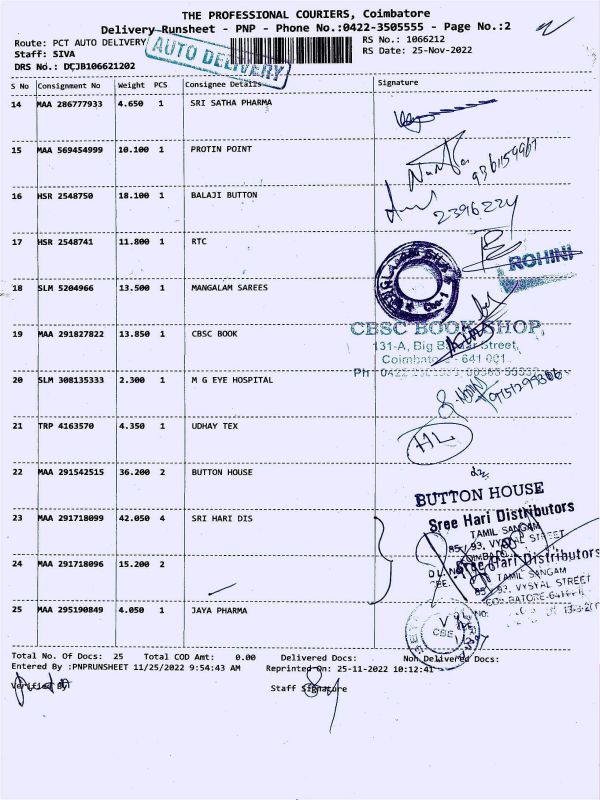 THE PROFESSIONAL COURIERS, Coimbatore
Delivery Runsheet - PNP - Phone No.:0422-3505555 - Page No.:2
Route: PCT AUTO DELIVERY
RS No.: 1066212
Staff: SIVA
RS Date: 25-Nov-2022
DRS No.: DCJB106621202
AUTO DELIVERY
S No Consignment No Weight PCS Consignee Details Signature
14 MAA 286777933 4.650 1 SRI SATHA PHARMA
15 MAA 569454999 10.100 1 PROTIN POINT
16 HSR 2548750 18.100 1 BALAJI BUTTON
2396224
17 HSR 2548741 11.800 1 RTC
ROHINI
18 SLM 5204966 13.500 1 MANGALAM SAREES
19 MAA 291827822 13.850 1 CBSC BOOK
CBSC BOOK SHOP,
131-A, Big Bazaar Street,
Coimbatore - 641 001.
Ph : 0422
20 SLM 308135333 2.300 1 M G EYE HOSPITAL
21 TRP 4163570 4.350 1 UDHAY TEX
HL
22 MAA 291542515 36.200 2 BUTTON HOUSE
BUTTON HOUSE
23 MAA 291718099 42.050 4 SRI HARI DIS
Sree Hari Distributors
TAMIL SANGAM
85 / 93, VYSYAL STREET
24 MAA 291718096 15.200 2
Sree Hari Distributors
TAMIL SANGAM
85 / 93, VYSYAL STREET
25 MAA 295190849 4.050 1 JAYA PHARMA
CBE
Total No. Of Docs: 25 Total COD Amt: 0.00 Delivered Docs: Non Delivered Docs:
Entered By :PNPRUNSHEET 11/25/2022 9:54:43 AM Reprinted On: 25-11-2022 10:12:41
Verified By
Staff Signature